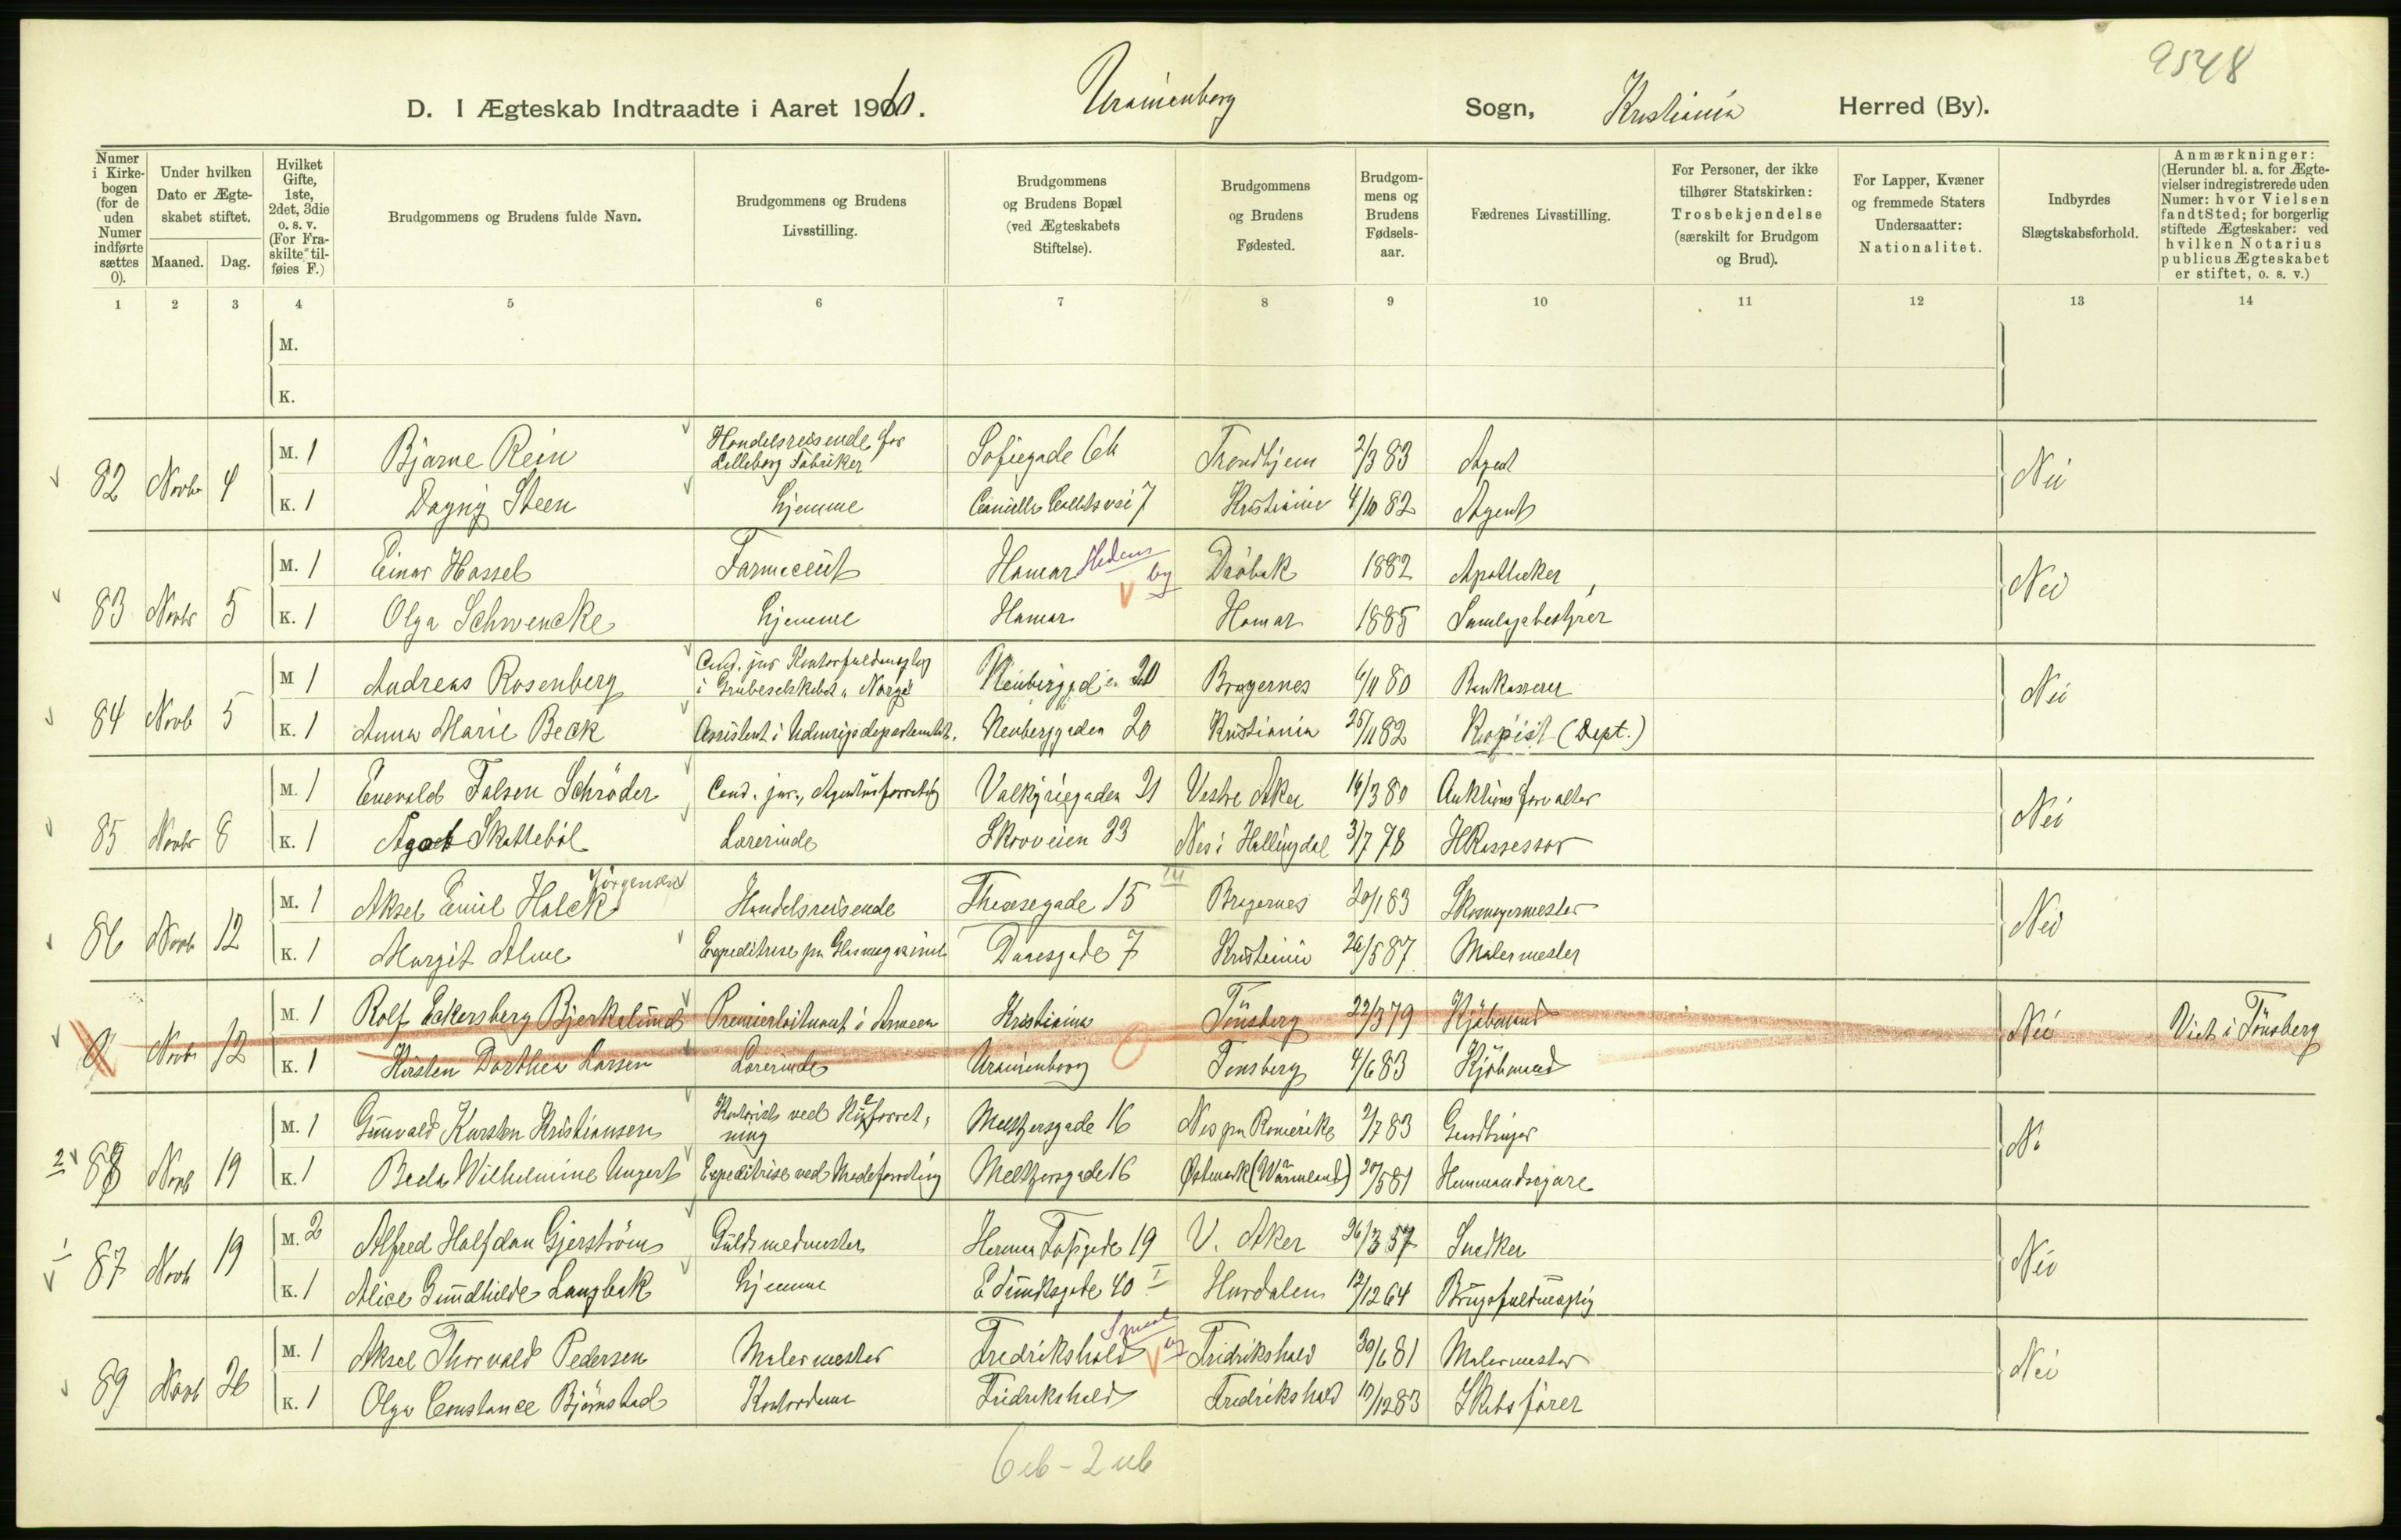 9548
D. I Ægteskab Indtraadte i Aaret 1910. Uranienborg Sogn, Kristiania Herred (By).
Numer i Kirkebogen (for de uden Numer indførte sættes 0).
Under hvilken Dato er Ægteskabet stiftet.
Maaned. Dag.
Hvilket Gifte, 1ste, 2det, 3die o. s. v. (For Fraskilte tilføies F.)
Brudgommens og Brudens fulde Navn.
Brudgommens og Brudens Livsstilling.
Brudgommens og Brudens Bopæl (ved Ægteskabets Stiftelse).
Brudgommens og Brudens Fødested.
Brudgommens og Brudens Fødselsaar.
Fædrenes Livsstilling.
For Personer, der ikke tilhører Statskirken: Trosbekjendelse (særskilt for Brudgom og Brud).
For Lapper, Kvæner og fremmede Staters Undersaatter: Nationalitet.
Indbyrdes Slægtskabsforhold.
Anmærkninger: (Herunder bl. a. for Ægtevielser indregistrerede uden Numer: hvor Vielsen fandt Sted; for borgerlig stiftede Ægteskaber: ved hvilken Notarius publicus Ægteskabet er stiftet, o. s. v.)
1 2 3 4 5 6 7 8 9 10 11 12 13 14
M.
K.
82 Novbr 4 M. 1 Bjarne Rein Handelsreisende for Lilleborg Fabriker Sofiegade 6h Trondhjem 2/3 83 Agent Nei
K. 1 Dagny Steen hjemme Camilla Colletts vei 7 Kristiania 4/10 82 Agent
83 Novbr 5 M. 1 Einar Hassel Farmaceut Hamar Hedem by Dröbak 1882 Apotheker Nei
K. 1 Olga Schwencke hjemme Hamar Hamar 1885 Samlagsbestyrer
84 Novb 5 M 1 Andreas Rosenberg Cand. jur Kontorfuldmægtig i Grubeselskabet "Norge" Neuberggaden 20 Bragernes 6/11 80 Bankkasserer Nei
K. 1 Anna Marie Beck Assistent i Udenrigsdepartementet. Neuberggaden 20 Kristiania 25/11 82 Kopist (Dept.)
85 Novbr 8 M. 1 Enevold Falsen Schröder Cand. jur., Agenturforretng Valkyriegaden 21 Vestre Aker 16/3 80 Auktionsforvalter Nei
K. 1 Agot Skattebøl Lærerinde Skovveien 33 Nes i Hallingdal 3/7 78 HRassessor
86 Novb 12 M. 1 Aksel Emil Holck Jörgensen Handelsreisende Theresegade 15 III Bragernes 20/1 83 Skomagermester Nei
K. 1 Margit Alme Expeditrise paa Glasmagasinet Daasgade 7 Kristiania 26/5 87 Malermester
0 Novbr 12 M. 1 Rolf Eckersberg Bjerkelund Premierløitnant i Armeen Kristiania Tönsberg 22/3 79 Kjöbmand Nei Viet i Tönsberg
K. 1 Kirsten Dorthea Larsen Lærerinde Uranienborg 0 Tönsberg 4/6 83 Kjöbmand
2 88 Novb 19 M. 1 Gunvald Karsten Kristiansen Kontorist ved forretning Meltzersgade 16 Nes paa Romerike 2/7 83 Gaardbruger
K. 1 Beda Wilhelmine Ungert Expeditrise ved Modeforretning Meltzersgade 16 Östmark (Wärmland) 20/5 81 Hemmansegare
1 87 Novb 19 M. 2 Alfred Halfdan Gjerström Guldsmedmester Herman Fossgade 19 V. Aker 26/3 57 Snedker Nei
K. 1 Alice Gundhilde Langbak hjemme Eilert Sundtsgade 40 I Hurdalen 12/12 64 Brugsfuldmægtig
89 Novb 26 M. 1 Aksel Thorvald Pedersen Malermester Fredrikshald Smaal by Fredrikshald 30/6 81 Malermester Nei
K. 1 Olga Constance Björnstad Kontordame Fredrikshald Fredrikshald 10/12 83 Skibsförer
6 ib - 2 ub